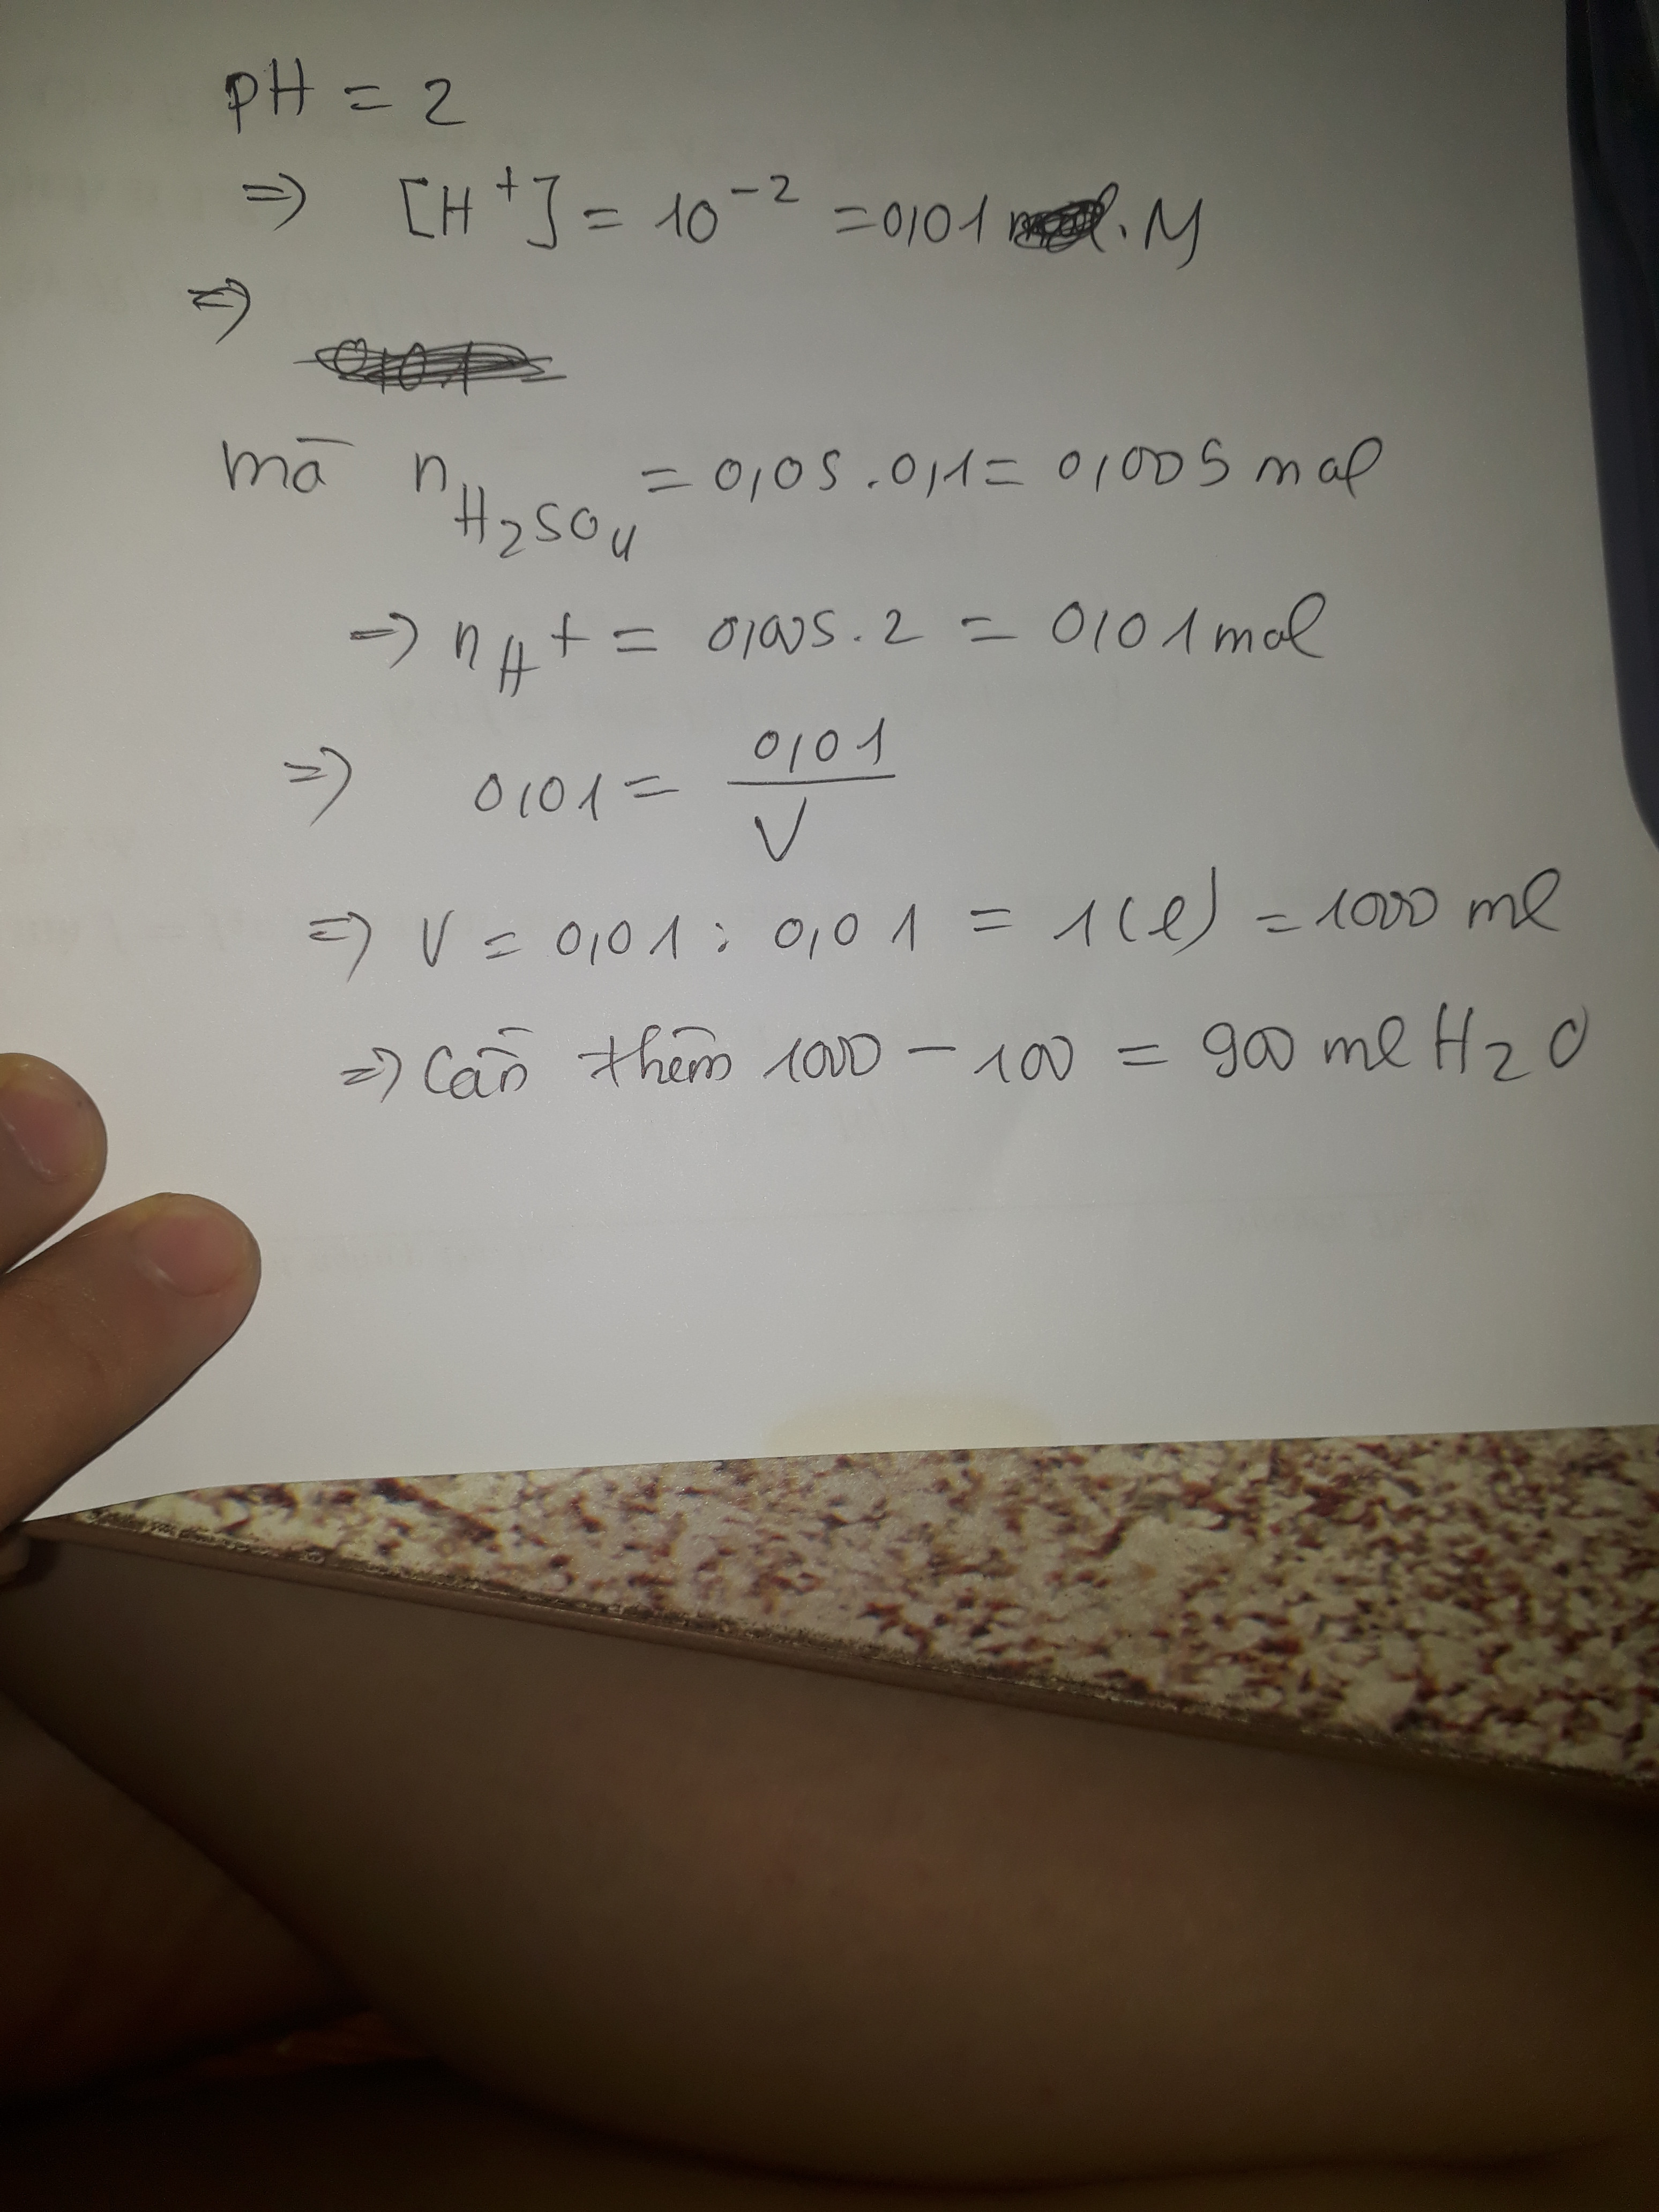 pH = 2
=> [H+] = 10^-2 = 0,01 . M
=>
mà nH2SO4 = 0,05 . 0,1 = 0,005 mol
=> nH+ = 0,005 . 2 = 0,01 mol
=> 0,01 = 0,01 / V
=> V = 0,01 : 0,01 = 1 (l) = 1000 ml
=> Cần thêm 1000 - 100 = 900 ml H2O